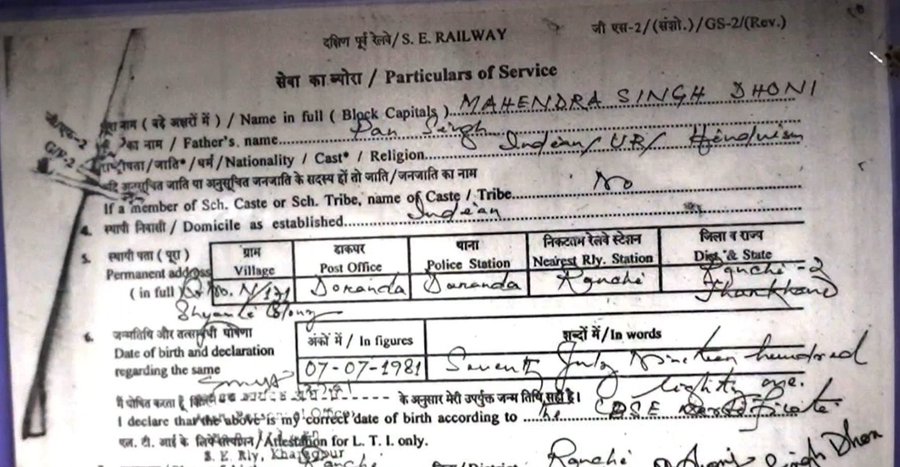 दक्षिण पूर्व रेलवे/S. E. RAILWAY
जी एस-2/(संशो.)/GS-2/(Rev.)
सेवा का ब्योरा / Particulars of Service
पूरा नाम ( बड़े अक्षरों में ) / Name in full ( Block Capitals ) MAHENDRA SINGH DHONI
का नाम / Father's name Pan Singh
राष्ट्रीयता/जाति*/धर्म/Nationality / Cast* / Religion Indian/UR/ Hinduism
यदि अनुसूचित जाति या अनुसूचित जनजाति के सदस्य हों तो जाति/जनजाति का नाम
If a member of Sch. Caste or Sch. Tribe, name of Caste / Tribe No
4. स्थायी निवासी / Domicile as established Indian
5. स्थायी पता ( पूरा ) ग्राम डाकघर थाना निकटतम रेलवे स्टेशन जिला व राज्य
Permanent address Village Post Office Police Station Nearest Rly. Station Dist. & State
( in full ) Qr. No. N/171 Doranda Doranda Ranchi Ranchi-2
Shyamli Colony Jharkhand
6. जन्मतिथि और तत्सम्बंधी घोषणा अंकों में / In figures शब्दों में/In words
Date of birth and declaration
regarding the same 07-07-1981 Seventh July Nineteen hundred
eighty one.
मैं घोषित करता हूँ कि के अनुसार मेरी उपर्युक्त जन्म तिथि सही है।
I declare that the above is my correct date of birth according to the CBSE Certificate
एल. टी. आई के लिये Attestation for L. T. I. only.
S. E. Rly, Kharagpur
Ranchi Ranchi Singh Dhoni